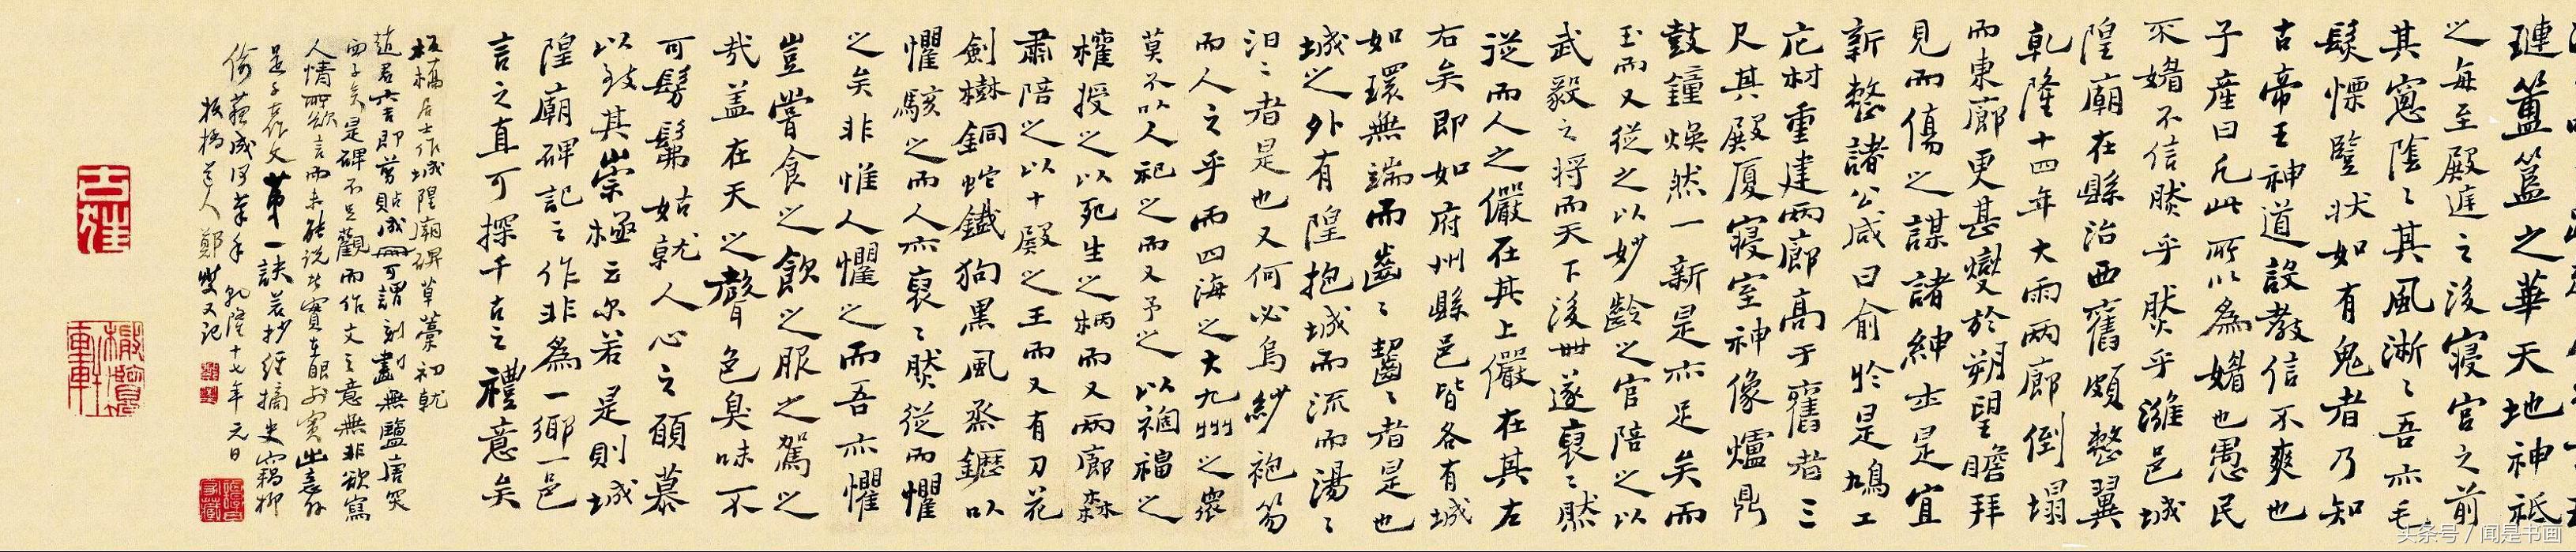 璉簠簋之華天地神祗
之每至殿庭之後寢宮之前
其窻陰〻其風淅〻吾亦毛
髮慄竪狀如有鬼者乃知
古帝王神道設教信不爽也
子產曰凡此所以為媚也愚民
不媚不信然乎然乎濰邑城
隍廟在縣治西舊頗整翼
乾隆十四年大雨兩廊倒塌
而東廊更甚爕於朔望瞻拜
見而傷之謀諸紳士是宜
新整諸公咸曰俞於是鳩工
庀材重建兩廊高于舊者三
尺其殿厦寢室神像爐鼎
鼓鐘煥然一新是亦足矣而
玉而又從之以妙齡之官陪之以
武毅之將而天下後世遂裒〻然
從而人之儼在其上儼在其左
右矣即如府州縣邑皆各有城
如環無端而齒〻齧〻者是也
城之外有隍抱城而流而湯〻
汨〻者是也又何必烏紗袍笏
而人之乎而四海之大九州之衆
莫不以人祀之而又予之以禍福之
權授之以死生之柄而又兩廊森
肅陪之以十殿之王而又有刀花
劍樹銅蛇鐵狗黑風蒸鑩以
懼駭之而人亦裒〻然從而懼
之矣非惟人懼之而吾亦懼
豈嘗食之飲之服之駕之
哉盖在天之聲色臭味不
可髣髴姑就人心之願慕
以致其崇極云尔若是則城
隍廟碑記之作非為一鄉一邑
言之直可探千古之禮意矣
板橋居士作城隍廟碑草藁初就
趙君六吉即剪貼成冊可謂刻畫無鹽唐突
西子矣是碑不足觀而作文之意無非欲寫
人情所欲言而未能說出實在眼前實出意外
是千古作文第一訣若抄經摘史竊柳
偷蘇成何筆手 乾隆十七年元日
板橋道人鄭燮又記
头条号 / 闻是书画